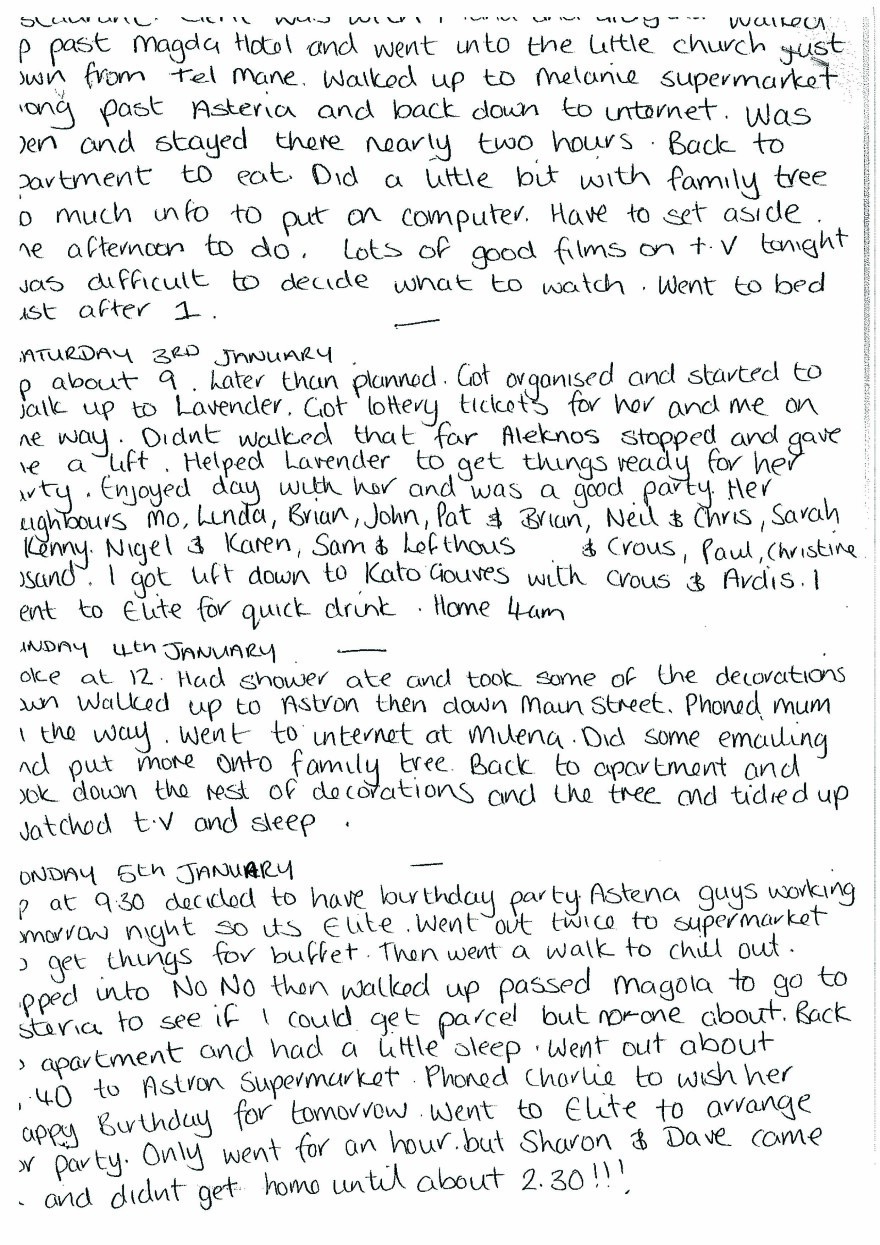 p past Magda Hotel and went into the little church just
own from Tel Mane. Walked up to Melanie supermarket
ong past Asteria and back down to internet. Was
pen and stayed there nearly two hours. Back to
partment to eat. Did a little bit with family tree
o much info to put on computer. Have to set aside.
ne afternoon to do. Lots of good films on t.v tonight
was difficult to decide what to watch. Went to bed
ust after 1.
ATURDAY 3RD JANUARY.
p about 9. Later than planned. Got organised and started to
walk up to Lavender. Got lottery tickets for her and me on
he way. Didnt walked that far Aleknos stopped and gave
e a lift. Helped Lavender to get things ready for her
arty. Enjoyed day with her and was a good party. Her
eighbours Mo, Linda, Brian, John, Pat & Brian, Neil & Chris, Sarah
Kenny. Nigel & Karen, Sam & Lofthous & Crous, Paul, Christine
I got lift down to Kato Gouves with Crous & Ardis. I
ent to Elite for quick drink. Home 4am
UNDAY 4th JANUARY
oke at 12. Had shower ate and took some of the decorations
own Walked up to Astron then down Main Street. Phoned mum
n the way. Went to internet at Milena. Did some emailing
nd put more onto family tree. Back to apartment and
ook down the rest of decorations and the tree and tidied up
Watched t.v and sleep.
ONDAY 5th JANUARY
p at 9.30 decided to have birthday party Asteria guys working
omorrow night so its Elite. Went out twice to supermarket
o get things for buffet. Then went a walk to chill out.
opped into No No then walked up passed Magola to go to
steria to see if I could get parcel but no-one about. Back
o apartment and had a little sleep. Went out about
.40 to Astron Supermarket. Phoned Charlie to wish her
appy Birthday for tomorrow. Went to Elite to arrange
or party. Only went for an hour. but Sharon & Dave came
. and didnt get home until about 2.30!!!